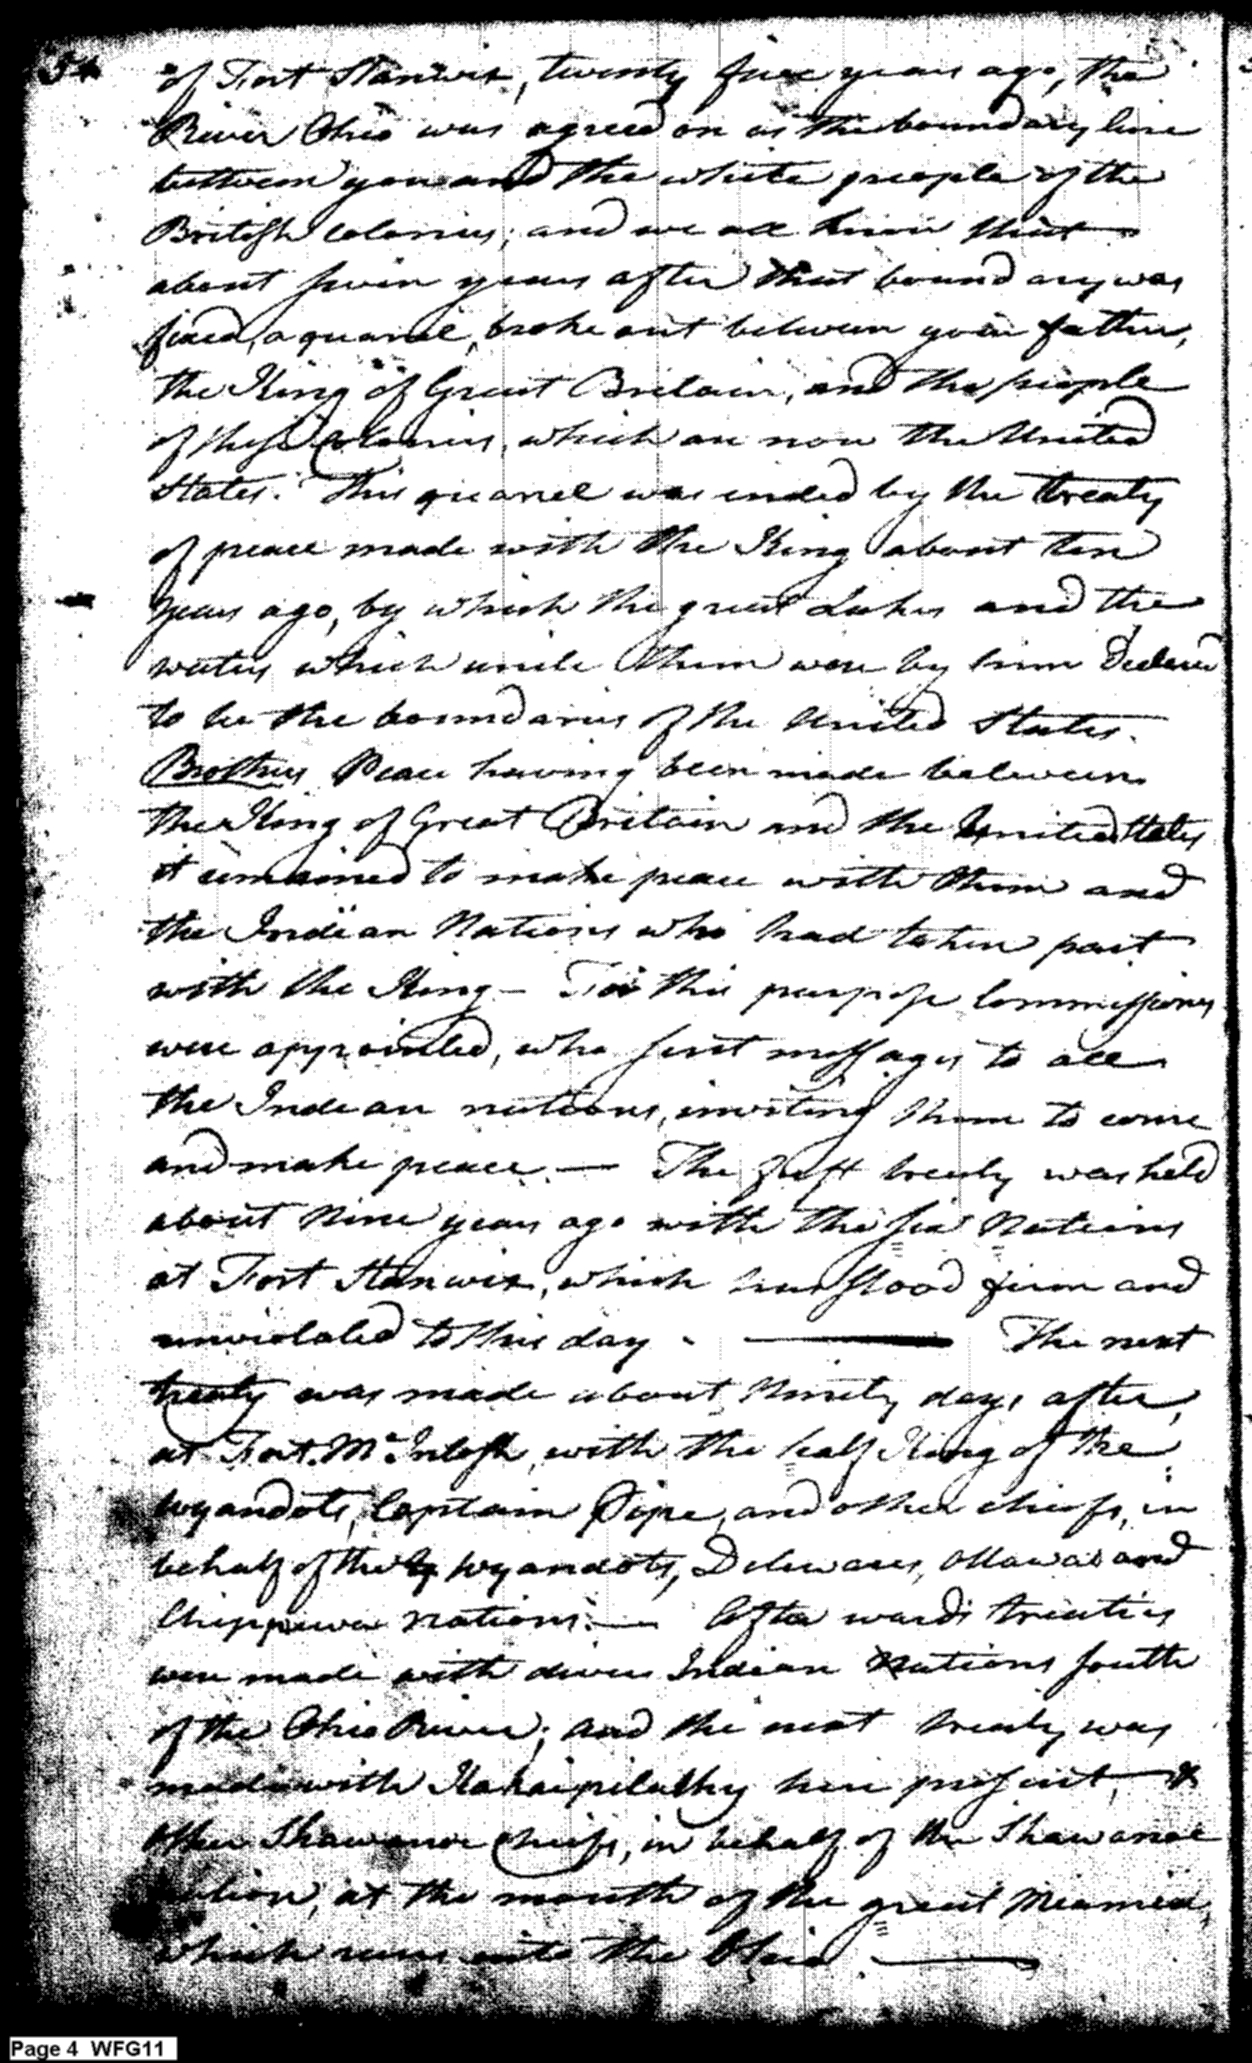 54
of Fort Stanwix, twenty five years ago, the
River Ohio was agreed on as the boundary line
between you and the white people of the
British Colonies; and we all know that
about seven years after that boundary was
fixed, a quarrel, broke out between your father,
the King of Great Britain, and the people
of those Colonies, which are now the United
States. This quarrel was ended by the treaty
of peace made with the King about ten
years ago, by which the great Lakes and the
waters which unite them were by him declared
to be the boundaries of the United States.
Brothers Peace having been made between
the King of Great Britain and the United States
it remained to make peace with them and
the Indian Nations who had taken part
with the King — For this purpose Commissioners
were appointed, who sent messages to all
the Indian nations, inviting them to come
and make peace. — The first treaty was held
about Nine years ago with the six Nations
at Fort Stanwix, which has stood firm and
unviolated to this day. — The next
treaty was made about Ninety days after,
at Fort McIntosh, with the half King of the
Wyandots, Captain Pipe, and other chiefs, in
behalf of the Wyandots, Delawares, Ottawas and
Chippewa Nations. — Afterwards treaties
were made with divers Indian Nations south
of the Ohio River; and the next treaty was
made with Kakaipilathy here present, &
other Shawanoe chiefs, in behalf of the Shawanoe
nation, at the mouth of the great Miami,
which runs into the Ohio. —
Page 4 WFG11